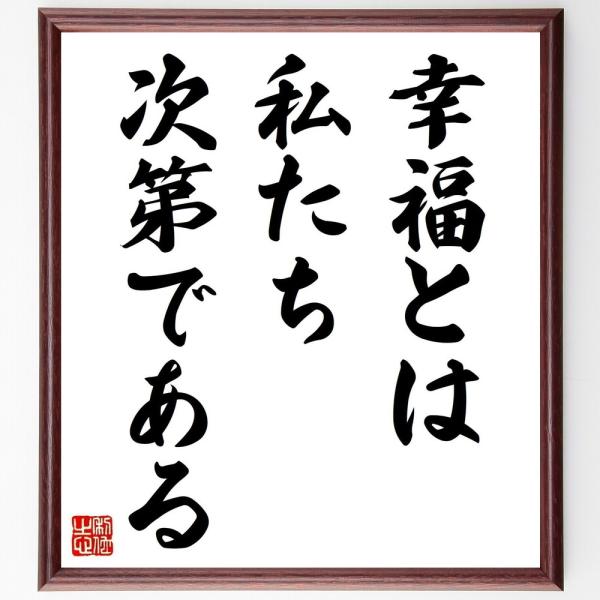 幸福とは
私たち
次第である